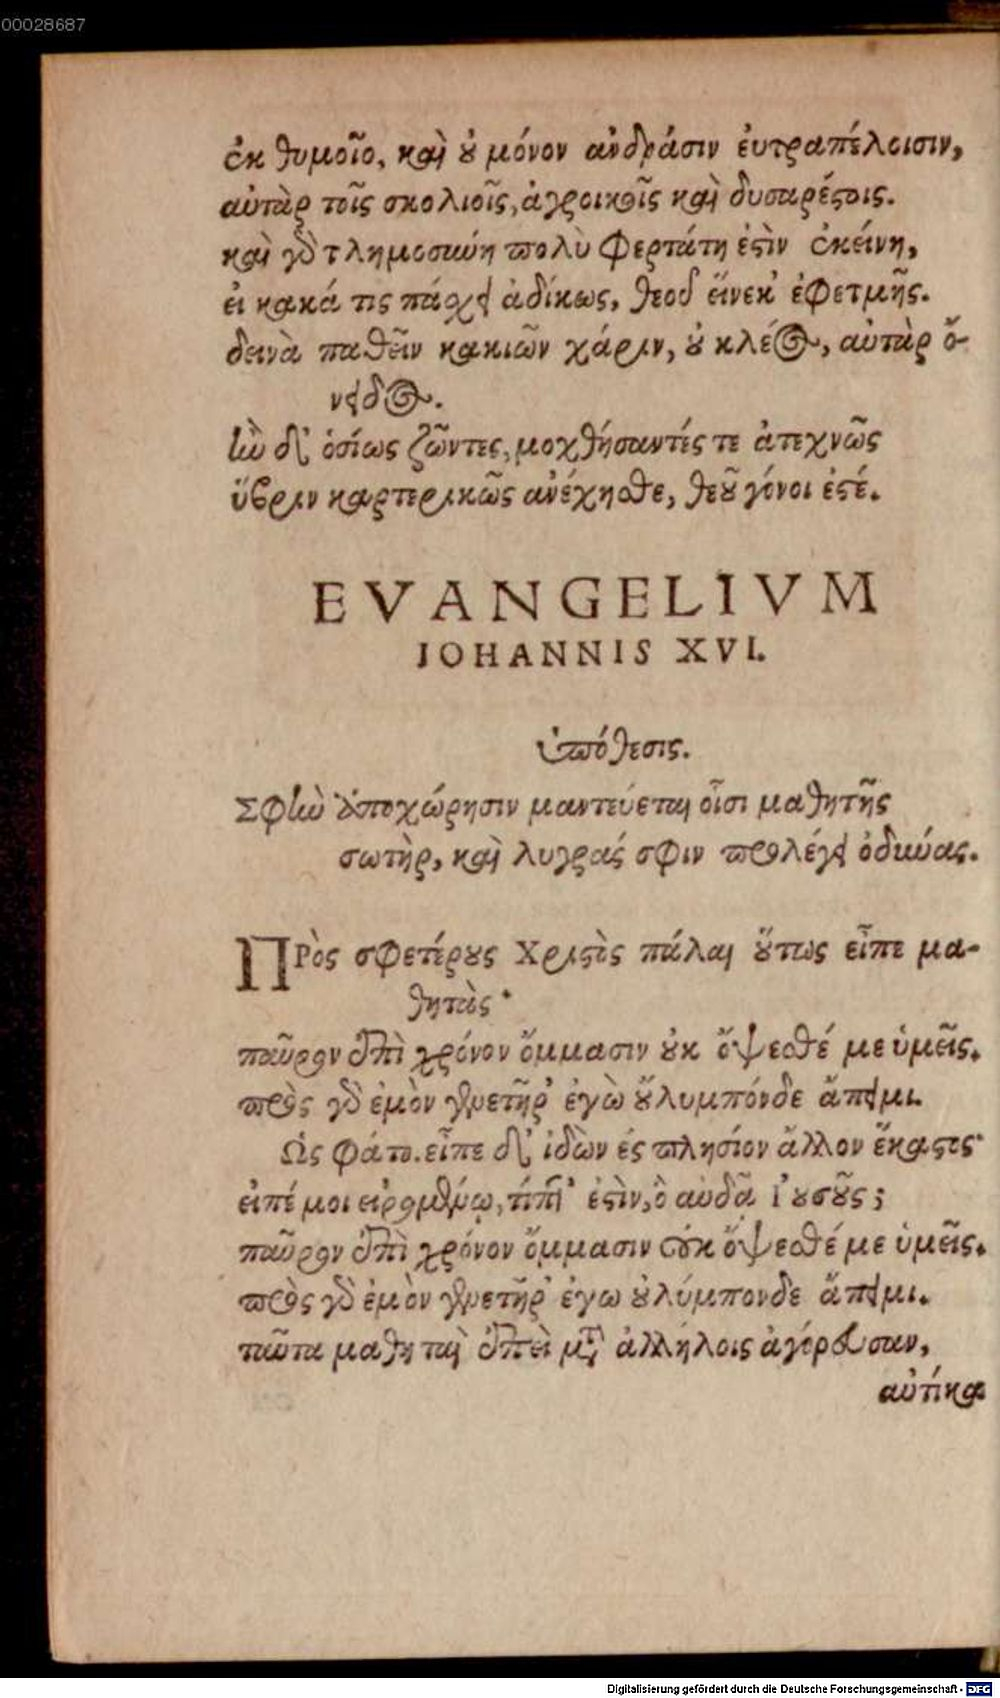 00028687
ἐκ θυμοῖο, καὶ ȣ̓ μόνον ἀνδράσιν ἐυτραπέλοισιν,
αὐτὰρ τοῖς σκολιοῖς, ἀγροικοῖς καὶ δυσαρέςοις.
καὶ γὸ τλημοσιώη πολὺ φερτάτη ἐςὶν ἐκείνη,
εἰ κακά τις πάσχει ἀδίκως, θεοῦ εἵνεκ' ἐφετμῆς.
δεινὰ παθεῖν κακιῶν χάριν, ȣ̓ κλέος, αὐτὰρ ὄ-
νειδος.
ἰὼ δ' ὁσίως ζῶντες, μοχθήσαντές τε ἀτεχνῶς
ὕβριν καρτερικῶς ἀνέχησθε, θεȣ͂ γόνοι ἐςέ.
EVANGELIVM
IOHANNIS XVI.
ὑπόθεσις.
Σφὼ ἀποχώρησιν μαντεύεται οἷσι μαθητῆς
σωτὴρ, καὶ λυγράς σφιν προλέγει ὀδύνας.
ΠΡὸς σφετέρȣς Χριςὸς πάλαι ȣ̔́τως εἶπε μα-
θητὰς·
παῦρον ἐπὶ χρόνον ὄμμασιν ȣ̓κ ὄψεσθέ με ὑμεῖς.
πρὸς γὸ ἐμὸν γενετῆρ' ἐγὼ ȣ̓́λυμπόνδε ἄπειμι.
Ὡς φάτο. εἶπε δ' ἰδὼν ἐς πλησίον ἄλλον ἕκαςτος·
εἰπέ μοι εἰρομένῳ, τίπτ' ἐςὶν, ὃ αὐδᾷ Ἰησȣ͂ς;
παῦρον ἐπὶ χρόνον ὄμμασιν ȣ̓κ ὄψεσθέ με ὑμεῖς.
πρὸς γὸ ἐμὸν γενετῆρ' ἐγω ȣ̓λύμπονδε ἄπειμι.
ταῦτα μαθηταὶ ἐπεὶ μετ' ἀλλήλοις ἀγόρευσαν,
αὐτίκα
Digitalisierung gefördert durch die Deutsche Forschungsgemeinschaft - DFG